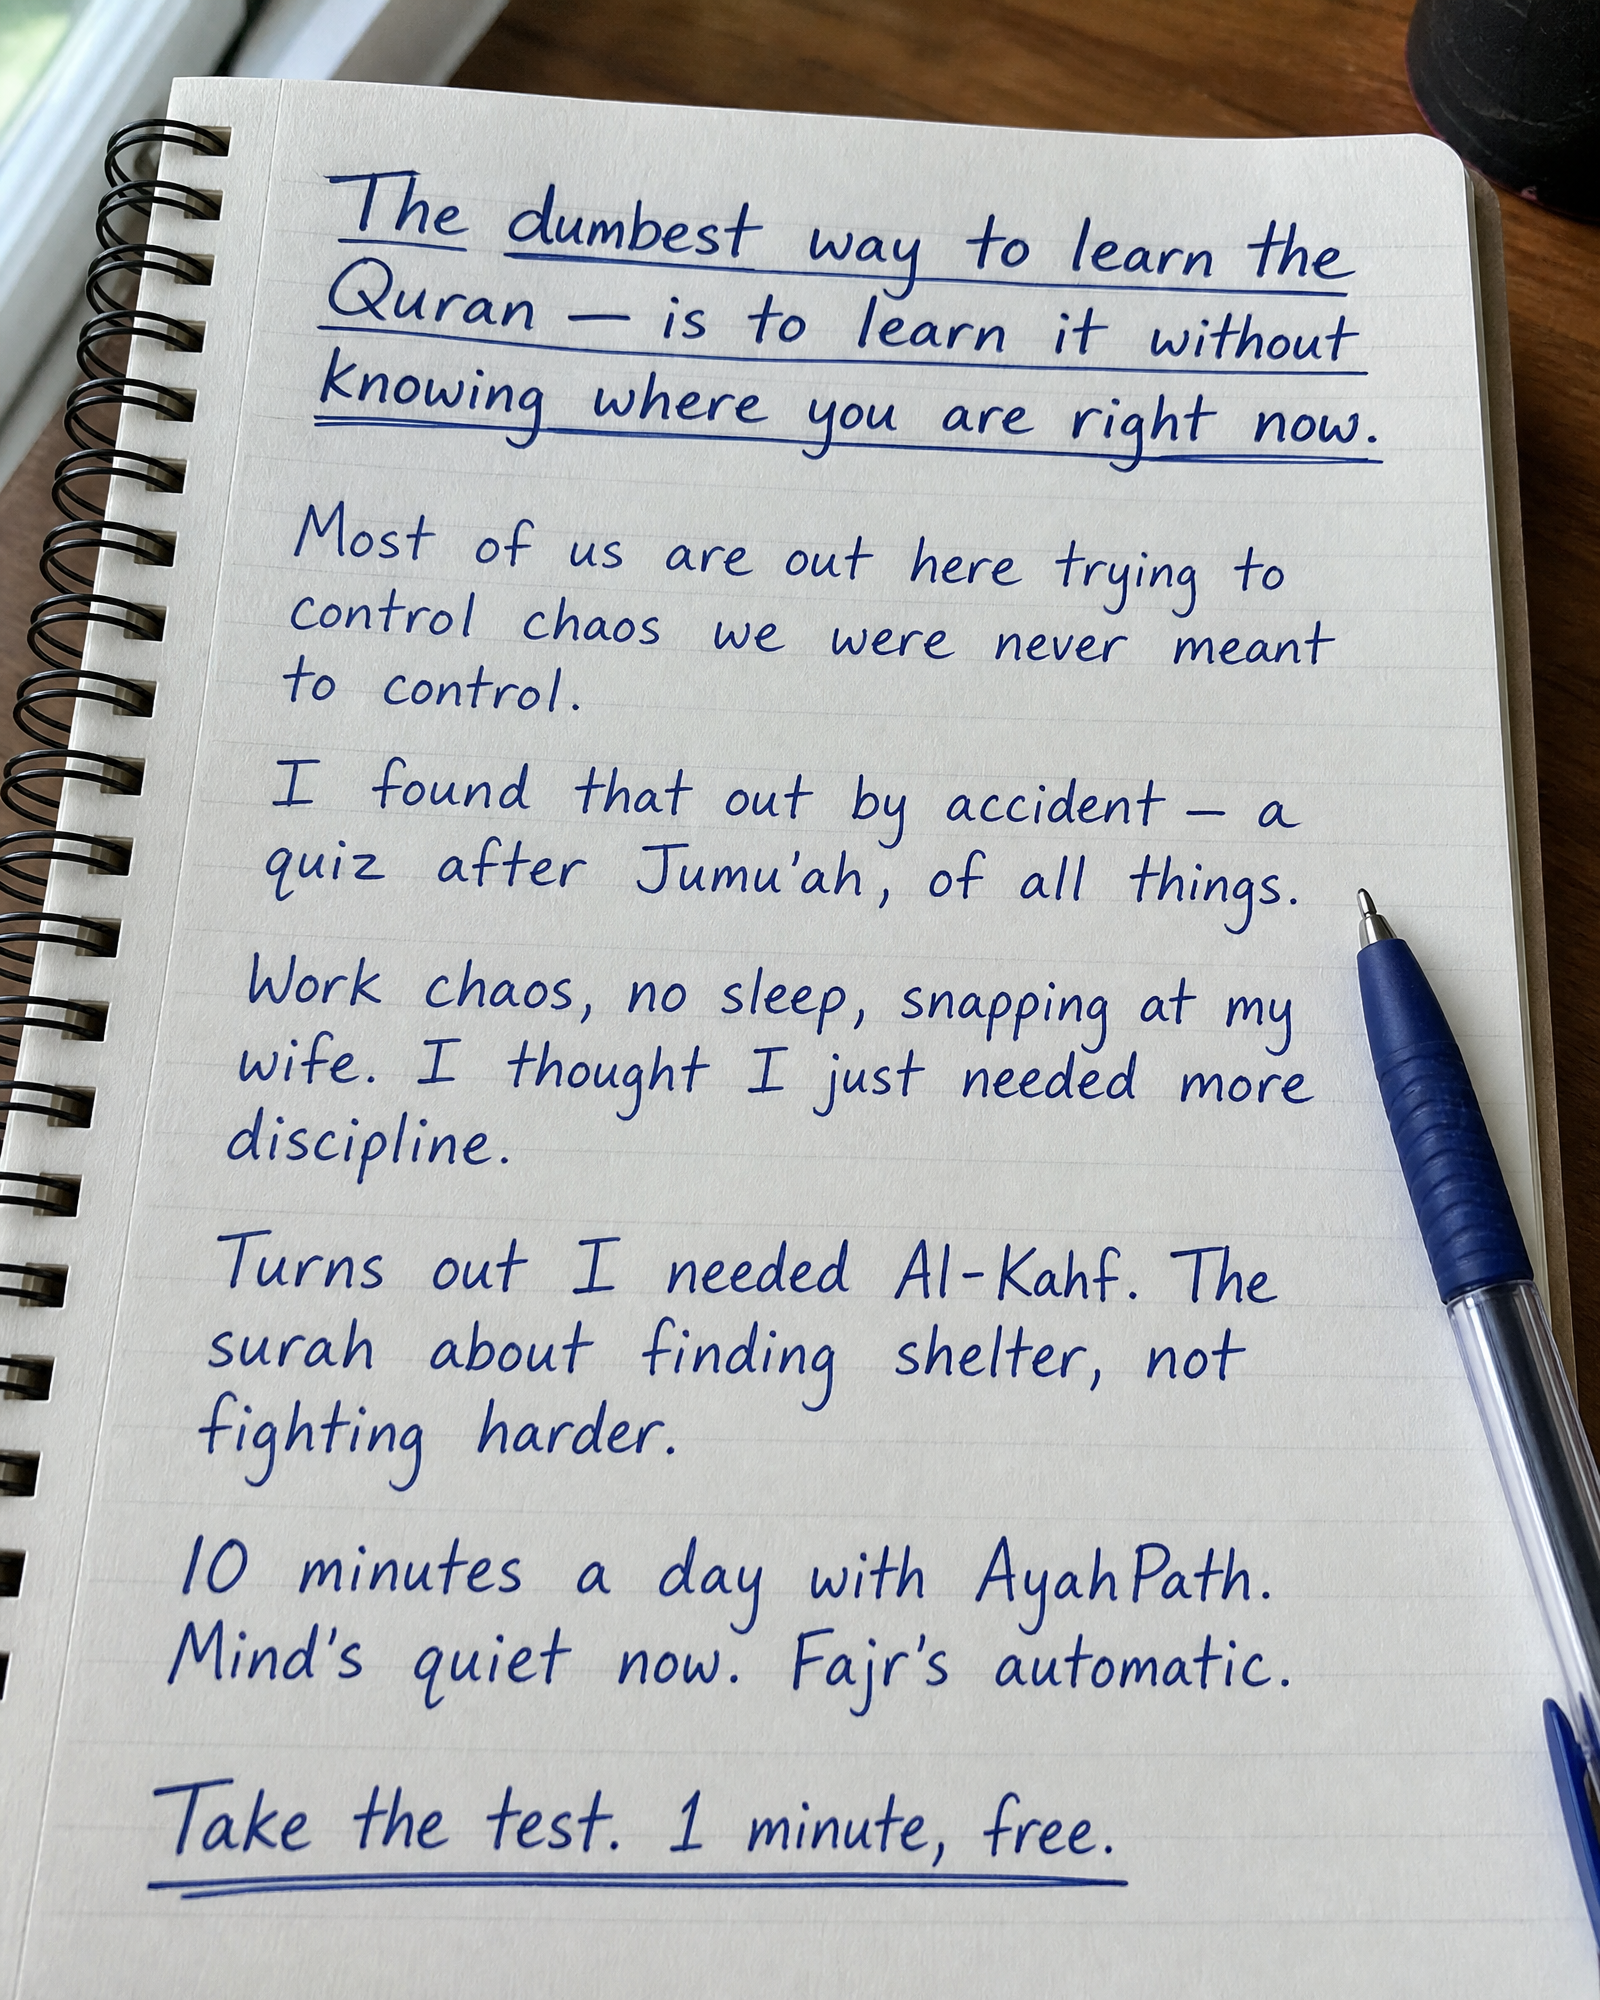 The dumbest way to learn the
Quran — is to learn it without
knowing where you are right now.
Most of us are out here trying to
control chaos we were never meant
to control.
I found that out by accident – a
quiz after Jumu'ah, of all things.
Work chaos, no sleep, snapping at my
wife. I thought I just needed more
discipline.
Turns out I needed Al-Kahf. The
surah about finding shelter, not
fighting harder.
10 minutes a day with AyahPath.
Mind's quiet now. Fajr's automatic.
Take the test. 1 minute, free.